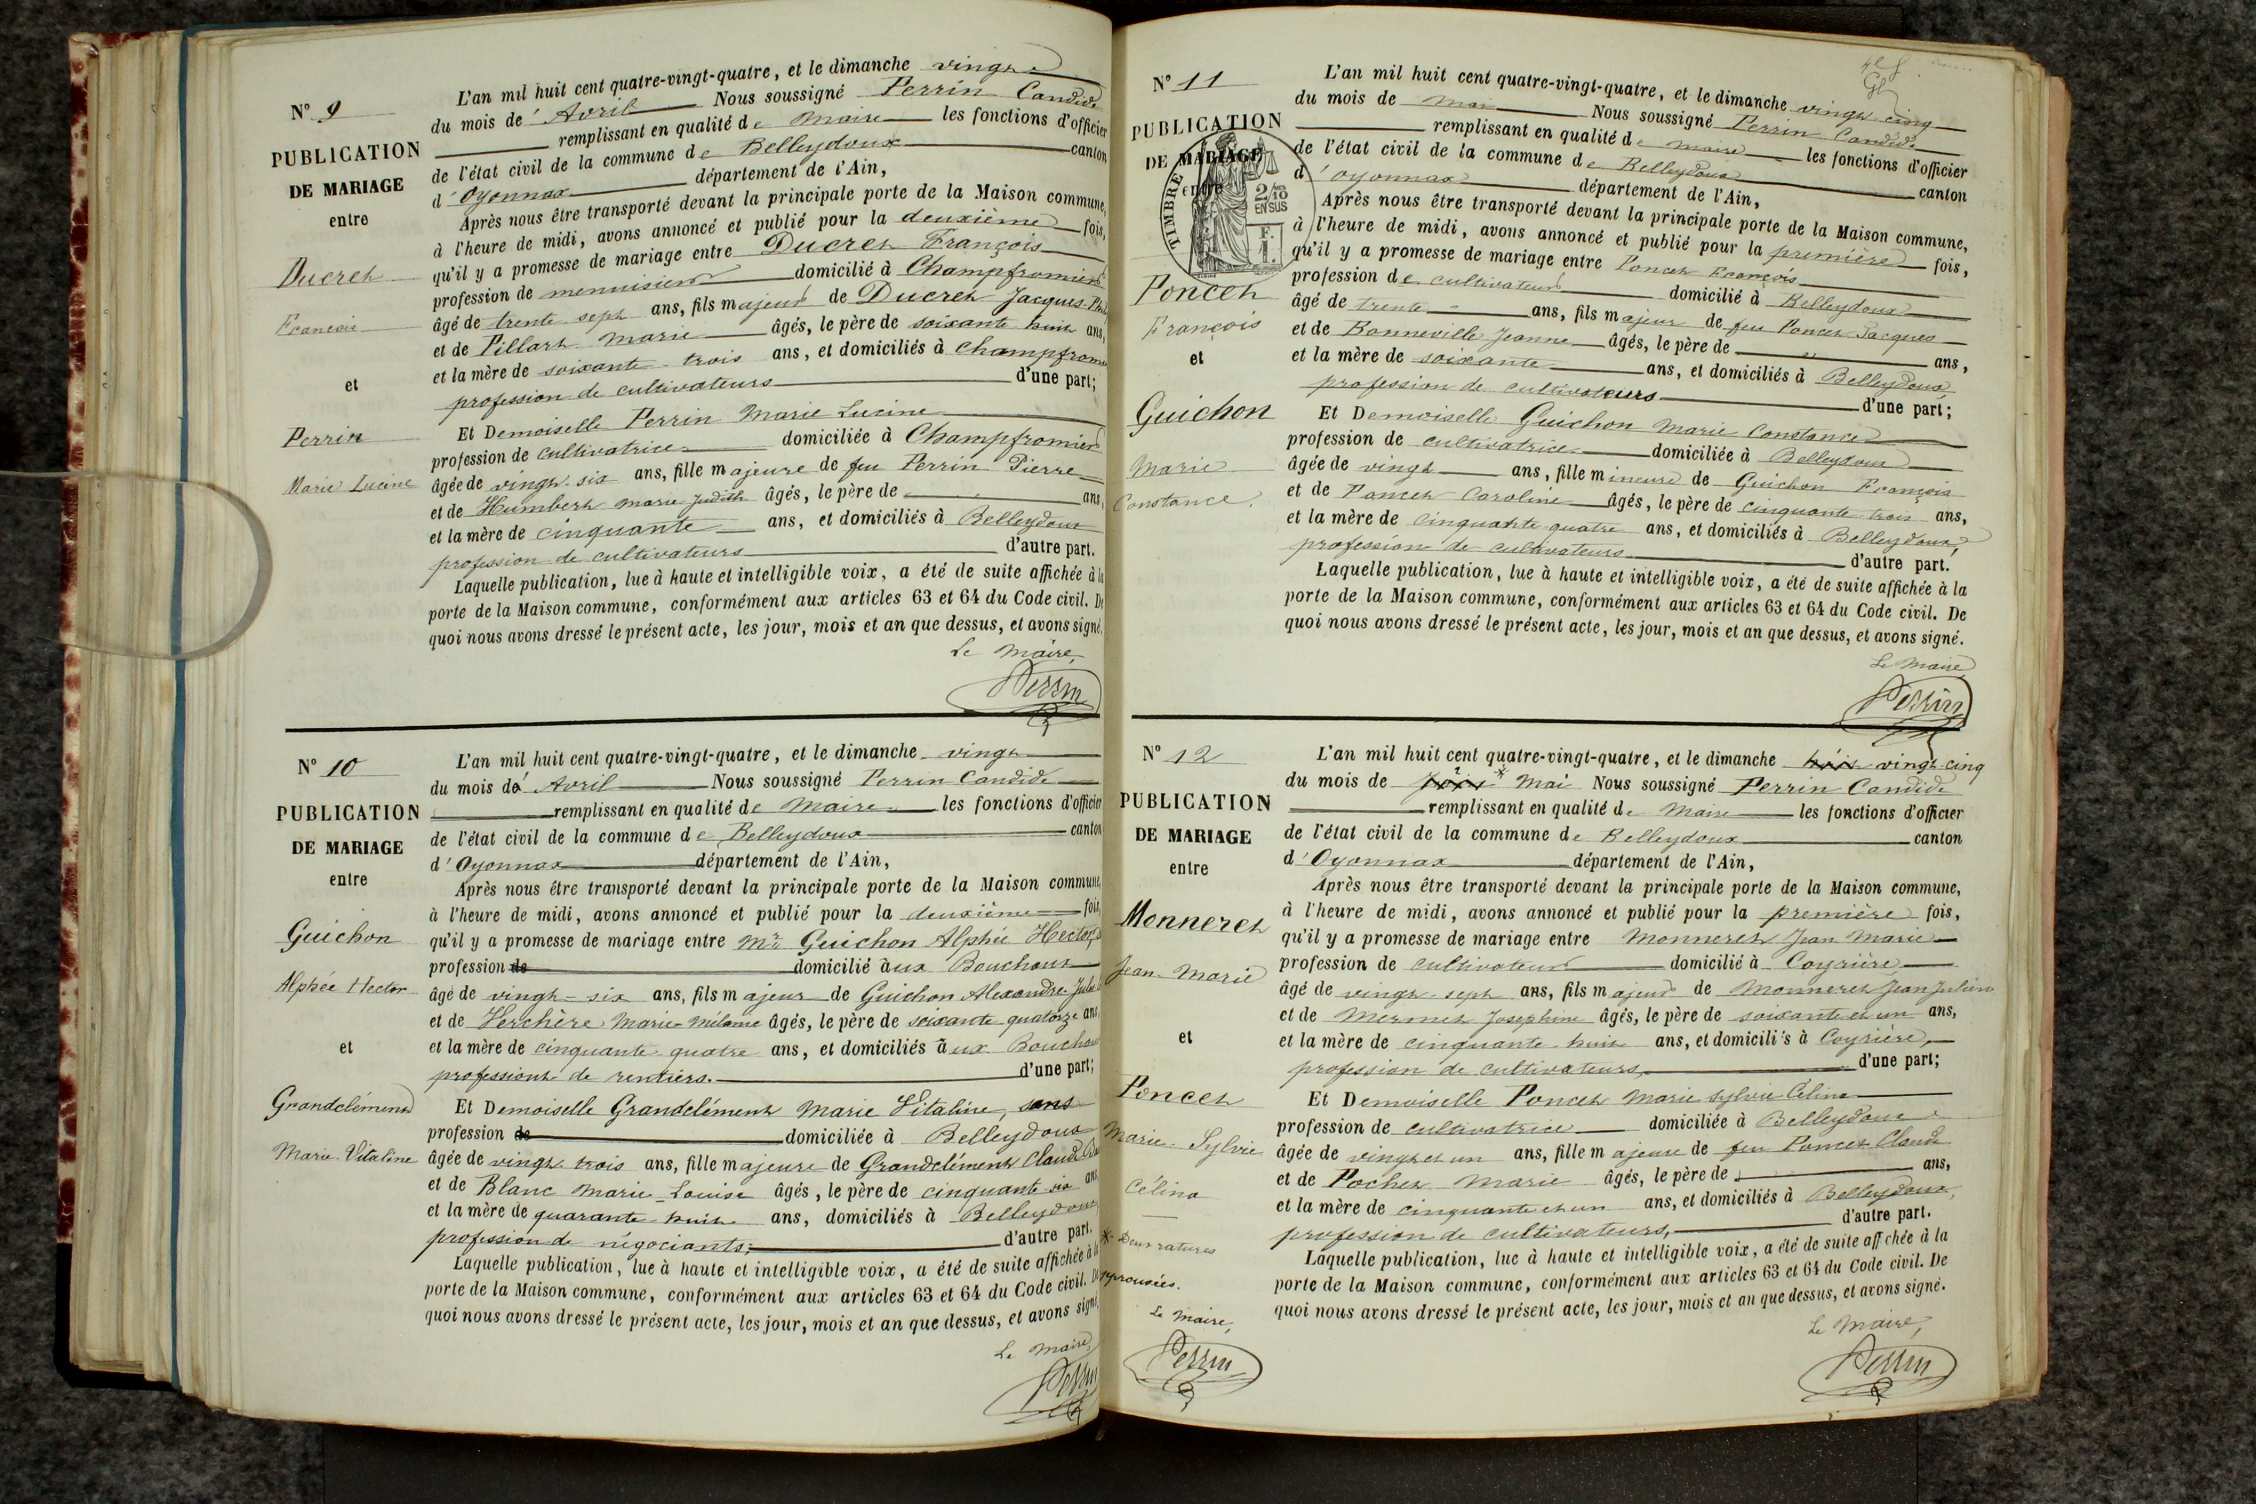 N° 9
PUBLICATION
DE MARIAGE
entre
Ducret
François
et
Perrin
Marie Lucine
L'an mil huit cent quatre-vingt-quatre, et le dimanche vingt
du mois de Avril Nous soussigné Perrin Candide
remplissant en qualité de Maire les fonctions d'officier
de l'état civil de la commune de Belleydoux canton
d'Oyonnax département de l'Ain,
Après nous être transporté devant la principale porte de la Maison commune,
à l'heure de midi, avons annoncé et publié pour la deuxième fois,
qu'il y a promesse de mariage entre Ducret François
profession de menuisier domicilié à Champfromier
âgé de trente sept ans, fils majeur de Ducret Jacques
et de Pillart Marie âgés, le père de soixante huit ans,
et la mère de soixante-trois ans, et domiciliés à Champfromier
profession de cultivateurs d'une part;
Et Demoiselle Perrin Marie Lucine
profession de cultivatrice domiciliée à Champfromier
âgée de vingt-six ans, fille majeure de feu Perrin Pierre
et de Humbert Marie Judith âgés, le père de ans,
et la mère de cinquante ans, et domiciliés à Belleydoux
profession de cultivateurs d'autre part.
Laquelle publication, lue à haute et intelligible voix, a été de suite affichée à la
porte de la Maison commune, conformément aux articles 63 et 64 du Code civil. De
quoi nous avons dressé le présent acte, les jour, mois et an que dessus, et avons signé.
Le Maire,
Perrin
N° 10
PUBLICATION
DE MARIAGE
entre
Guichon
Alphée Hector
et
Grandclément
Marie Vitaline
L'an mil huit cent quatre-vingt-quatre, et le dimanche vingt
du mois d'Avril Nous soussigné Perrin Candide
remplissant en qualité de Maire les fonctions d'officier
de l'état civil de la commune de Belleydoux canton
d'Oyonnax département de l'Ain,
Après nous être transporté devant la principale porte de la Maison commune,
à l'heure de midi, avons annoncé et publié pour la deuxième fois,
qu'il y a promesse de mariage entre Mr Guichon Alphée Hector,
profession de domicilié aux Bouchoux
âgé de vingt-six ans, fils majeur de Guichon Alexandre
et de Verchère Marie-Mélanie âgés, le père de soixante quatorze ans
et la mère de cinquante quatre ans, et domiciliés aux Bouchoux
profession de rentiers. d'une part;
Et Demoiselle Grandclément Marie Vitaline, sans
profession de domiciliée à Belleydoux
âgée de vingt trois ans, fille majeure de Grandclément Claude
et de Blanc Marie-Louise âgés, le père de cinquante six ans
et la mère de quarante-huit ans, domiciliés à Belleydoux,
profession de négociants; d'autre part.
Laquelle publication, lue à haute et intelligible voix, a été de suite affichée à la
porte de la Maison commune, conformément aux articles 63 et 64 du Code civil. De
quoi nous avons dressé le présent acte, les jour, mois et an que dessus, et avons signé.
Le Maire,
Perrin
N° 11
PUBLICATION
DE MARIAGE
entre
TIMBRE
2/10
EN SUS
F.
1.
Poncet
François
et
Guichon
Marie
Constance.
L'an mil huit cent quatre-vingt-quatre, et le dimanche vingt cinq
du mois de Mai Nous soussigné Perrin Candide
remplissant en qualité de Maire les fonctions d'officier
de l'état civil de la commune de Belleydoux canton
d'Oyonnax département de l'Ain,
Après nous être transporté devant la principale porte de la Maison commune,
à l'heure de midi, avons annoncé et publié pour la première fois,
qu'il y a promesse de mariage entre Poncet François
profession de cultivateur domicilié à Belleydoux
âgé de trente ans, fils majeur de feu Poncet Jacques
et de Bonneville Jeanne âgés, le père de " ans,
et la mère de soixante ans, et domiciliés à Belleydoux,
profession de cultivateurs d'une part;
Et Demoiselle Guichon Marie Constance
profession de cultivatrice domiciliée à Belleydoux
âgée de vingt ans, fille mineure de Guichon François
et de Poncet Caroline âgés, le père de cinquante-trois ans,
et la mère de cinquante quatre ans, et domiciliés à Belleydoux,
profession de cultivateurs d'autre part.
Laquelle publication, lue à haute et intelligible voix, a été de suite affichée à la
porte de la Maison commune, conformément aux articles 63 et 64 du Code civil. De
quoi nous avons dressé le présent acte, les jour, mois et an que dessus, et avons signé.
Le Maire
Perrin
N° 12
PUBLICATION
DE MARIAGE
entre
Monneret
Jean-Marie
et
Poncet
Marie-Sylvie
Célina
* Deux ratures
approuvées.
Le Maire,
Perrin
L'an mil huit cent quatre-vingt-quatre, et le dimanche vingt-cinq
du mois de * Mai Nous soussigné Perrin Candide
remplissant en qualité de Maire les fonctions d'officier
de l'état civil de la commune de Belleydoux canton
d'Oyonnax département de l'Ain,
Après nous être transporté devant la principale porte de la Maison commune,
à l'heure de midi, avons annoncé et publié pour la première fois,
qu'il y a promesse de mariage entre Monneret Jean Marie
profession de cultivateur domicilié à Coyrière
âgé de vingt-sept ans, fils majeur de Monneret Jean Julien
et de Mermet Josephine âgés, le père de soixante et un ans,
et la mère de cinquante-huit ans, et domiciliés à Coyrière,
profession de cultivateurs, d'une part;
Et Demoiselle Poncet Marie Sylvie Célina
profession de cultivatrice domiciliée à Belleydoux
âgée de vingt et un ans, fille majeure de feu Poncet Claude
et de Pochet Marie âgés, le père de ans,
et la mère de cinquante et un ans, et domiciliés à Belleydoux,
profession de cultivateurs, d'autre part.
Laquelle publication, lue à haute et intelligible voix, a été de suite affichée à la
porte de la Maison commune, conformément aux articles 63 et 64 du Code civil. De
quoi nous avons dressé le présent acte, les jour, mois et an que dessus, et avons signé.
Le Maire,
Perrin